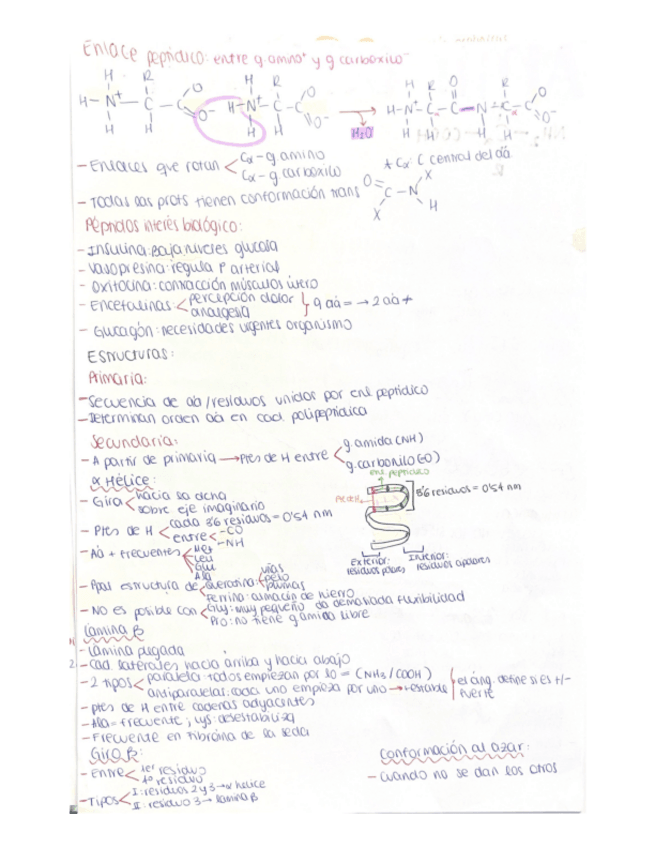 Enlace peptídico: entre g. amino⁺ y g carboxico⁻
H R O H R O H R O R O
H-N⁺-C-C O⁻ H-N⁺-C-C O⁻ → H-N⁺-C-C-N-C-C O⁻
H H H H H₂O H H H H
- Enlaces que rotan < Cα-g amino
Cα-g carboxilo
* Cα: C central del aá
- Todas las prots tienen conformación trans
O=C-N X X H
Péptidos interés biológico:
- Insulina: baja niveles glucosa
- Vasopresina: regula P arterial
- Oxitocina: contracción músculos útero
- Encefalinas < percepción dolor
analgesia } 9 aá = → 2 aá ≠
- Glucagón: necesidades urgentes organismo
Estructuras:
Primaria:
- Secuencia de aá/residuos unidos por enl peptídico
- Determinan orden aá en cad polipeptídica
Secundaria:
- A partir de primaria → Ptes de H entre < g. amida (NH)
g. carbonilo (CO)
α Hélice:
- Gira < hacia la dcha
sobre eje imaginario
- Ptes de H < cada 3'6 residuos = 0'54 nm
entre < -CO
-NH
enl peptídico
Pte de H
3'6 residuos = 0'54 nm
Exterior: residuos polares
Interior: residuos apolares
- Aá + frecuentes < Met
Leu
Glu
Ala
- Ppal estructura de < queratina < uñas
pelo
plumas
Ferritina: almacén de hierro
- No es posible con < Gly: muy pequeño da demasiada flexibilidad
Pro: no tiene g amida libre
Lámina β
- Lámina plegada
- Cad laterales hacia arriba y hacia abajo
- 2 tipos < paralela: todos empiezan por lo = (NH₂/COOH)
antiparalelas: cada uno empieza por uno → + estable
} el áng. define si es +/- fuerte
- Ptes de H entre cadenas adyacentes
- Ala = frecuente; Lys: desestabiliza
- Frecuente en fibroína de la seda
Giro β:
- Entre < 1er residuo
4º residuo
- Tipos < I: residuos 2 y 3 → α hélice
II: residuo 3 → lámina β
Conformación al azar:
- Cuando no se dan los otros